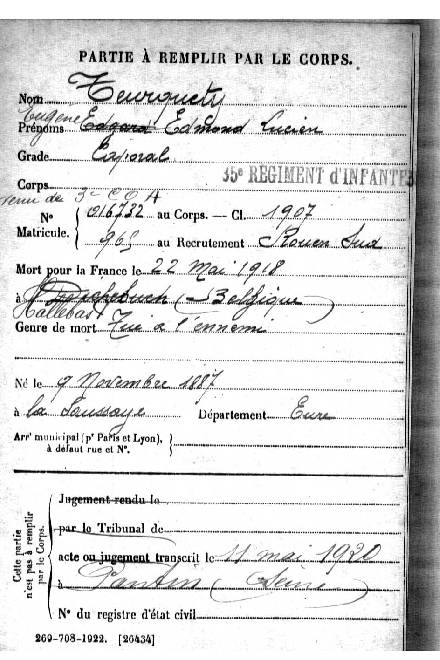 PARTIE À REMPLIR PAR LE CORPS.
Nom
Eugène
Prénoms Edgard Edmond Lucien
Grade Caporal
Corps 35e REGIMENT d'INFANTE
venu de 3e COA
N° 016732 au Corps. — Cl. 1907
Matricule. 965 au Recrutement Rouen Sud
Mort pour la France le 22 Mai 1918
à (Belgique)
Hallebast
Genre de mort Tué à l'ennemi
Né le 9 Novembre 1887
à La Saussaye Département Eure
Arrt municipal (pr Paris et Lyon),
à défaut rue et N°.
Cette partie
n'est pas à remplir
par le Corps.
Jugement rendu le
par le Tribunal de
acte ou jugement transcrit le 11 mai 1920
à Pantin (Seine)
N° du registre d'état civil
269-708-1922. [26434]